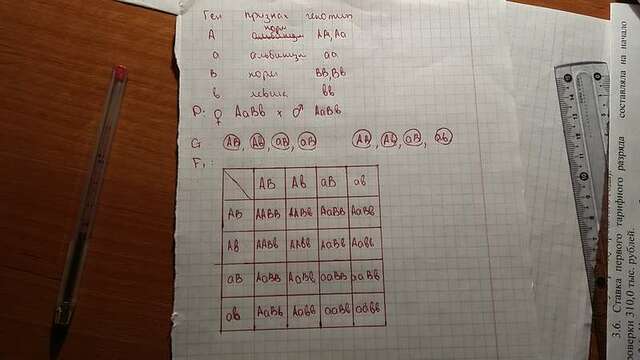 Ген признак генотип
норм
А альбинизм АА, Аа
а альбинизм аа
В норм ВВ, Вв
в левша вв
Р: ♀ АаВв х ♂ АаВв
G АВ, Ав, аВ, аВ АВ, Ав, аВ, ав
F₁:
АВ Ав аВ ав
АВ ААВВ ААВв АаВВ АаВв
Ав ААВв ААвв АаВв Аавв
аВ АаВВ АаВв ааВВ ааВв
ав АаВв Аавв ааВв аавв
3.6. Ставка первого тарифного разряда составляла на начало
310,0 тыс. рублей.